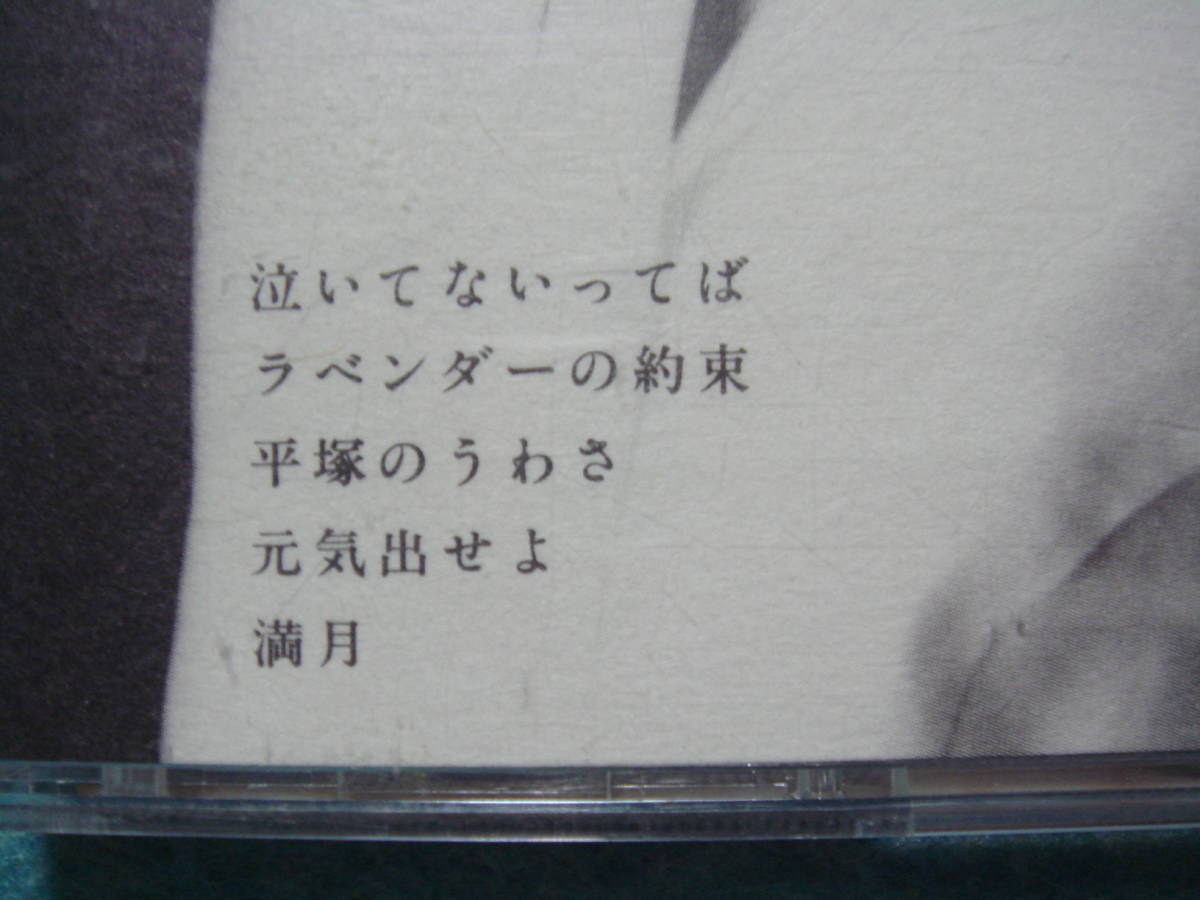 泣いてないってば
ラベンダーの約束
平塚のうわさ
元気出せよ
満月